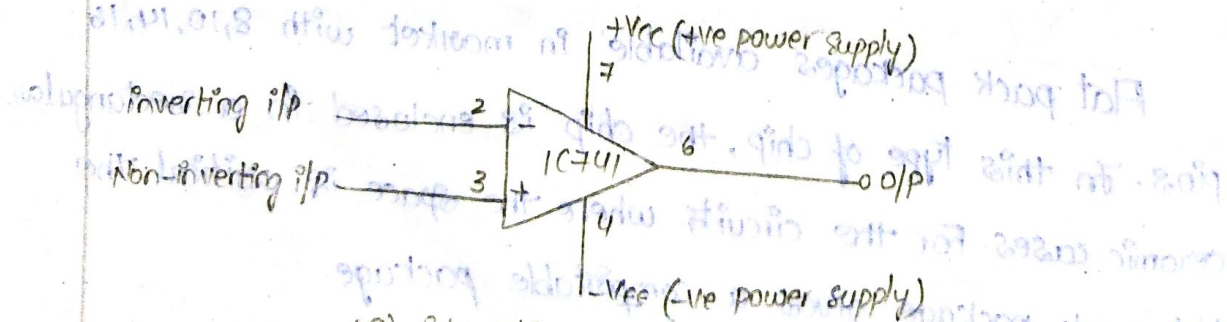 +Vcc (+ve power supply)
7
inverting i/p
2
-
IC741
6
Non-inverting i/p
3
+
o/p
4
-Vee (-ve power supply)